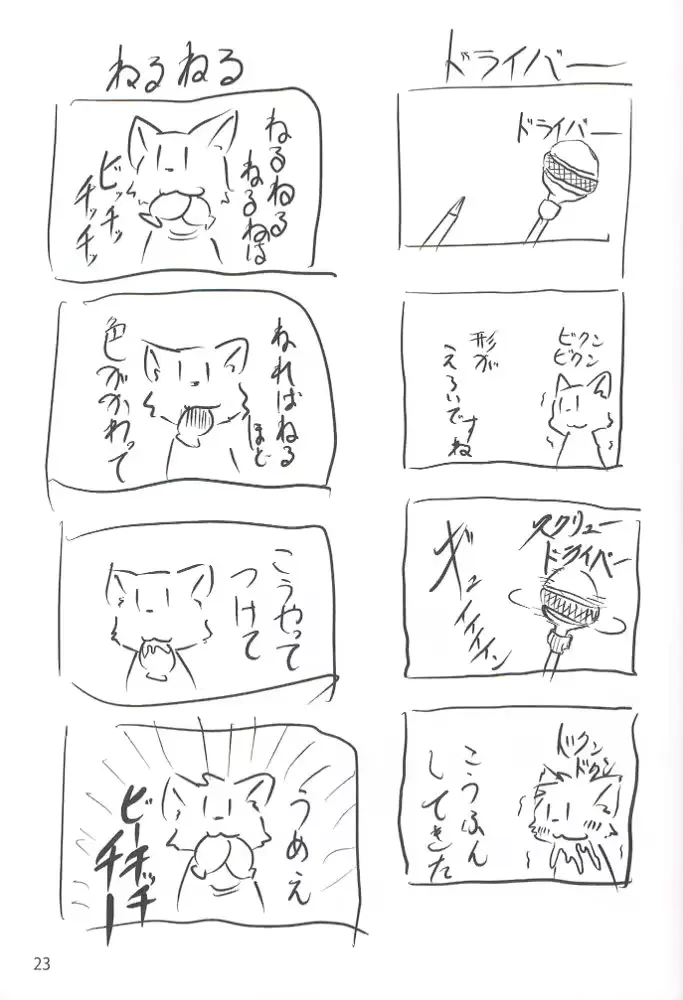 ドライバー
ドライバー
ビクン
ビクン
形が
えろいですね
スクリュー
ドライバー
ギュ
イイイイン
ドクン
ドクン
こうふん
してきた
ねるねる
ねるねる
ねるねは
ビッチッ
チッチッ
ねればねる
ほど
色がかわって
こうやって
つけて
うめえ
ビーチッチ
チー
23